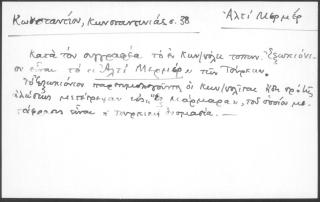 Κωνσταντίου, Κωνσταντινιάς σ. 38
Ἀλτί Μερμέρ
Κατά τόν συγγραφέα τό ἐν Κων/πόλει τοπων. Ἐξωκιόνι-
ον εἶναι τό « Ἀλτί Μερμέρ » τῶν Τούρκων.
Τό Ἐξωκιόνιον παρετυμολογοῦντες οἱ Κων/πολῖται ἤδη πρό τῆς
ἁλώσεως μετέτρεψαν εἰς « Ἓξ Μάρμαρα », τοῦ ὁποίου με-
τάφρασις εἶναι ἡ τουρκική ὀνομασία. —